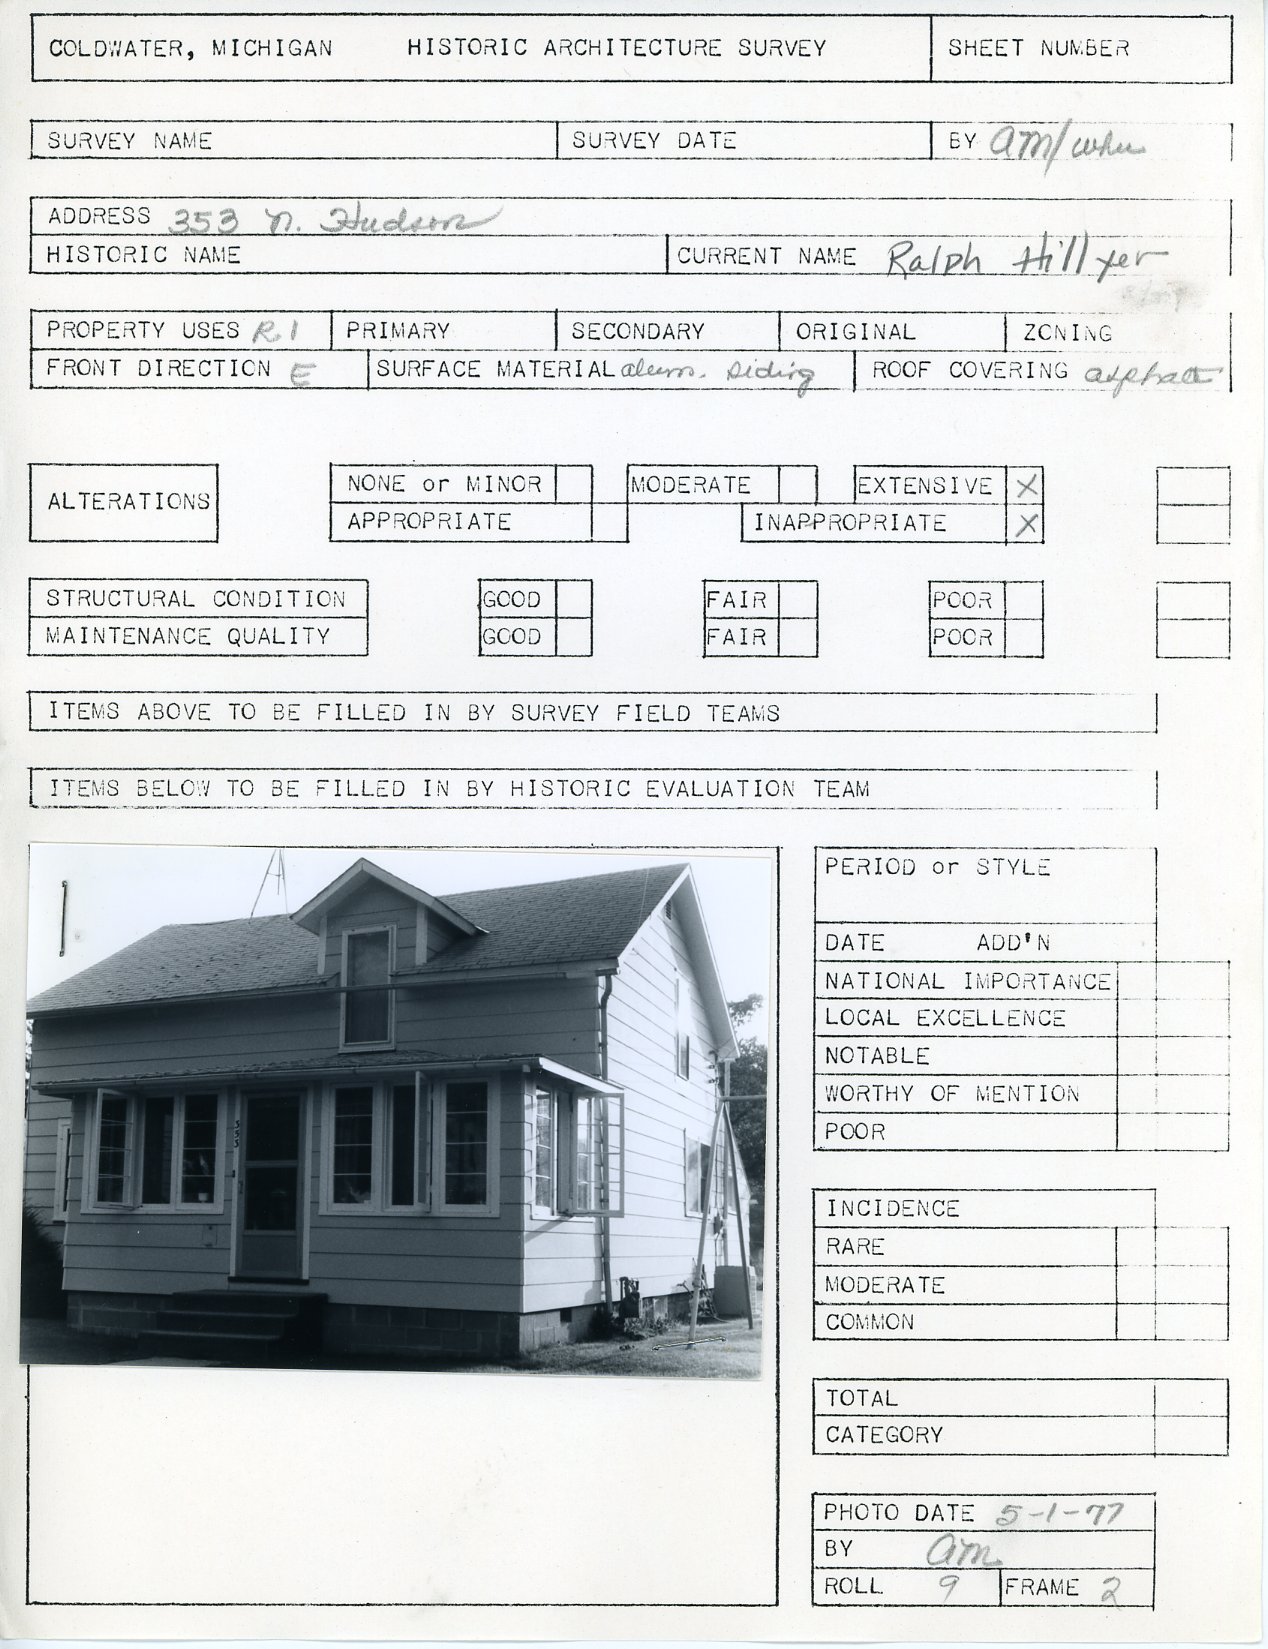 COLDWATER, MICHIGAN HISTORIC ARCHITECTURE SURVEY SHEET NUMBER
SURVEY NAME SURVEY DATE BY am/whu
ADDRESS 353 N. Hudson
HISTORIC NAME CURRENT NAME Ralph Hillyer
PROPERTY USES R.1 PRIMARY SECONDARY ORIGINAL ZONING
FRONT DIRECTION E SURFACE MATERIAL alum. siding ROOF COVERING asphalt
ALTERATIONS
NONE or MINOR MODERATE EXTENSIVE X
APPROPRIATE INAPPROPRIATE X
STRUCTURAL CONDITION GOOD FAIR POOR
MAINTENANCE QUALITY GOOD FAIR POOR
ITEMS ABOVE TO BE FILLED IN BY SURVEY FIELD TEAMS
ITEMS BELOW TO BE FILLED IN BY HISTORIC EVALUATION TEAM
353
PERIOD or STYLE
DATE ADD'N
NATIONAL IMPORTANCE
LOCAL EXCELLENCE
NOTABLE
WORTHY OF MENTION
POOR
INCIDENCE
RARE
MODERATE
COMMON
TOTAL
CATEGORY
PHOTO DATE 5-1-77
BY am
ROLL 9 FRAME 2